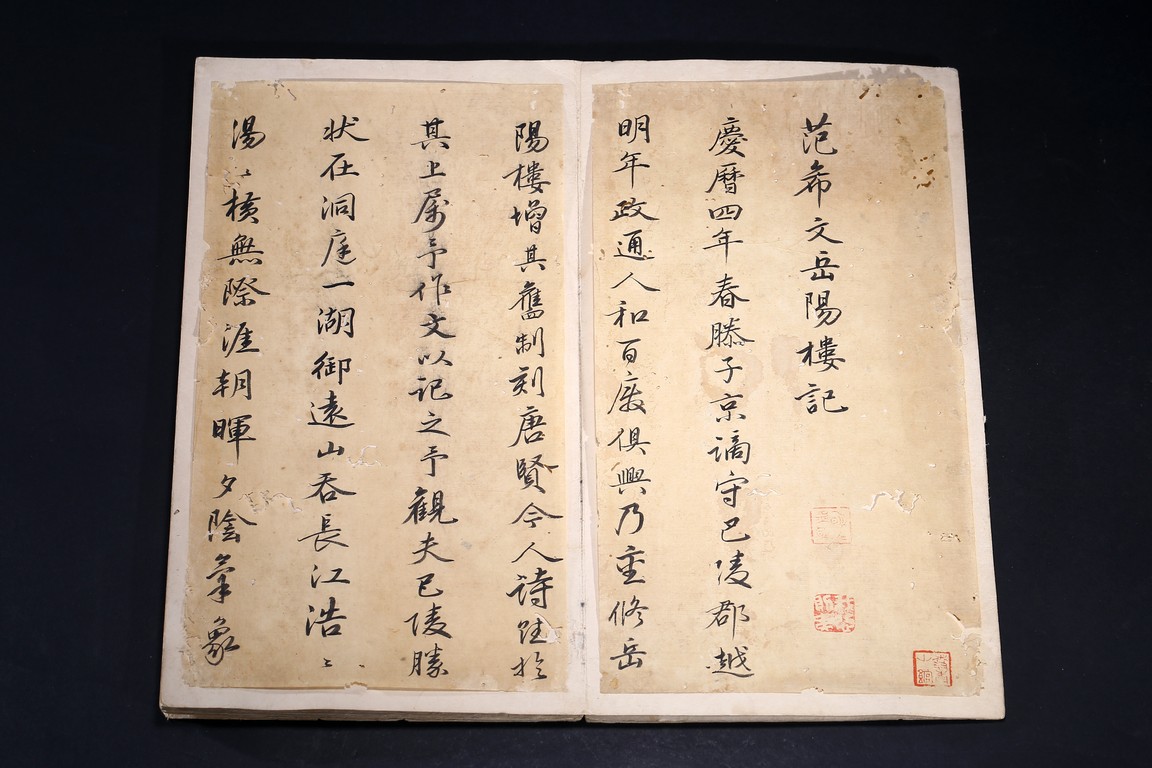 范希文岳陽樓記
慶曆四年春滕子京謫守巴陵郡越
明年政通人和百廢俱興乃重修岳
陽樓增其舊制刻唐賢今人詩賦於
其上屬予作文以記之予觀夫巴陵勝
狀在洞庭一湖御遠山吞長江浩〻
湯〻橫無際涯朝暉夕陰氣象